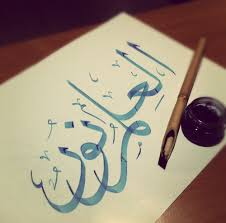 العلم نور